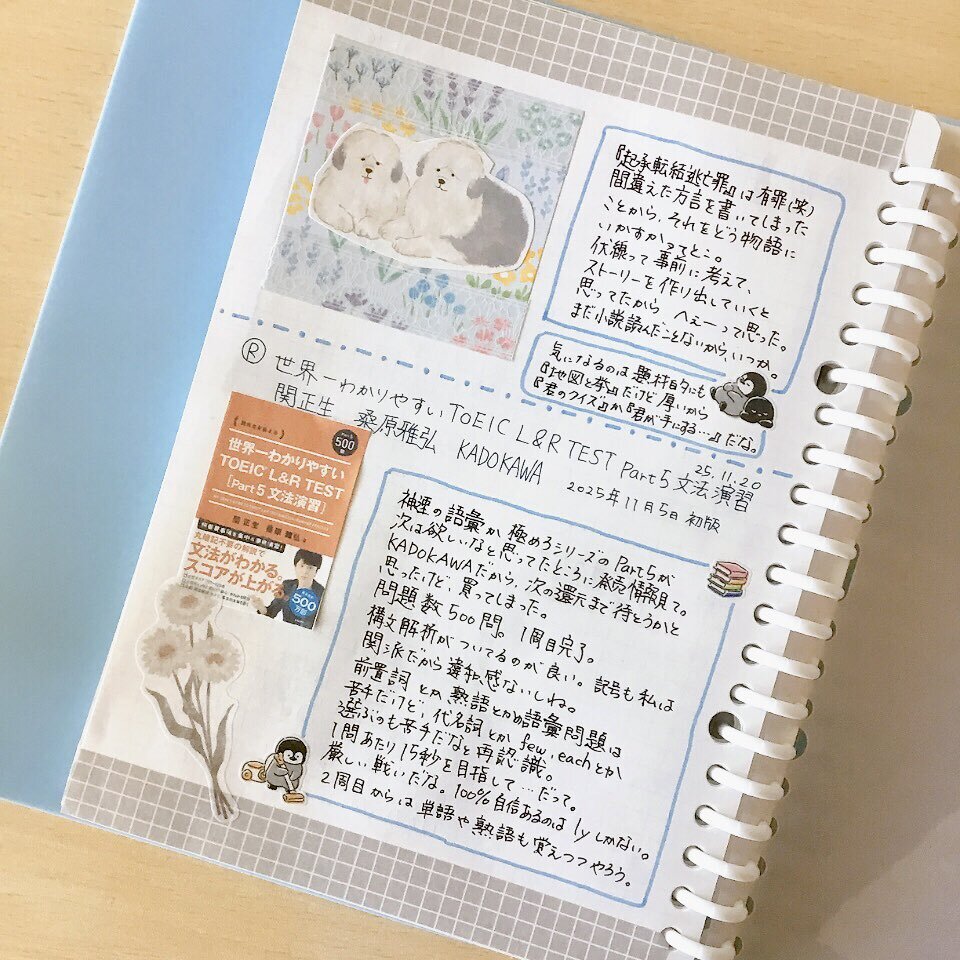 『起承転結逃亡罪』は有罪(笑)
間違えた方言を書いてしまった
ことから、それをどう物語に
いかすかってとこ。
伏線って事前に考えて、
ストーリーを作り出していくと
思ってたから へぇーって思った。
まだ小説読んだことないから、いつか。
気になるのは題材的にも
『地図と拳』だけど厚いから
『君のクイズ』か『君が手にする…』だな。
R 世界一わかりやすいTOEIC L&R TEST Part5 文法演習
25.11.20
関正生 桑原雅弘 KADOKAWA 2025年11月5日 初版
500
世界一わかりやすい
TOEIC L&R TEST
[Part5 文法演習]
関 正生 桑原 雅弘
丸暗記不要の解説で
文法がわかる。
スコアが上がる。
500
神速の語彙か極めろシリーズのPart5が
次は欲しいなと思ってたところに発売情報見て。
KADOKAWAだから、次の還元まで待とうかと
思ったけど、買ってしまった。
問題数500問。1周目完了。
構文解析がついてるのが良い。記号も私は
関派だから違和感ないしね。
前置詞とか、熟語とかの語彙問題は
苦手だけど、代名詞とか few, each とか
選ぶのも苦手だなと再認識。
1問あたり15秒を目指して…だって。
厳しい戦いだな。100%自信あるのは ly しかない。
2周目からは単語や熟語も覚えつつやろう。